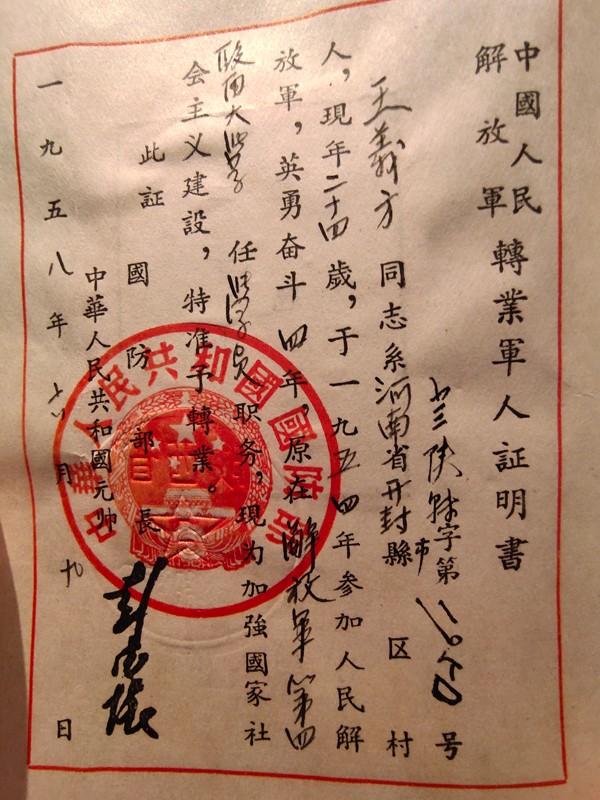 中國人民
解放軍
轉業軍人証明書
字第 号
王義方同志系河南省开封縣市 区 村
人，現年二十四歲，于一九五四年参加人民解
放軍，英勇奋斗四年，原在解放軍第四
大学 任 学員职务，現为加強國家社
会主义建設，特准予轉業。
此証
國防部長
中華人民共和國元帅
彭德懷
一九五八年 月 九 日
中華人民共和國國防部